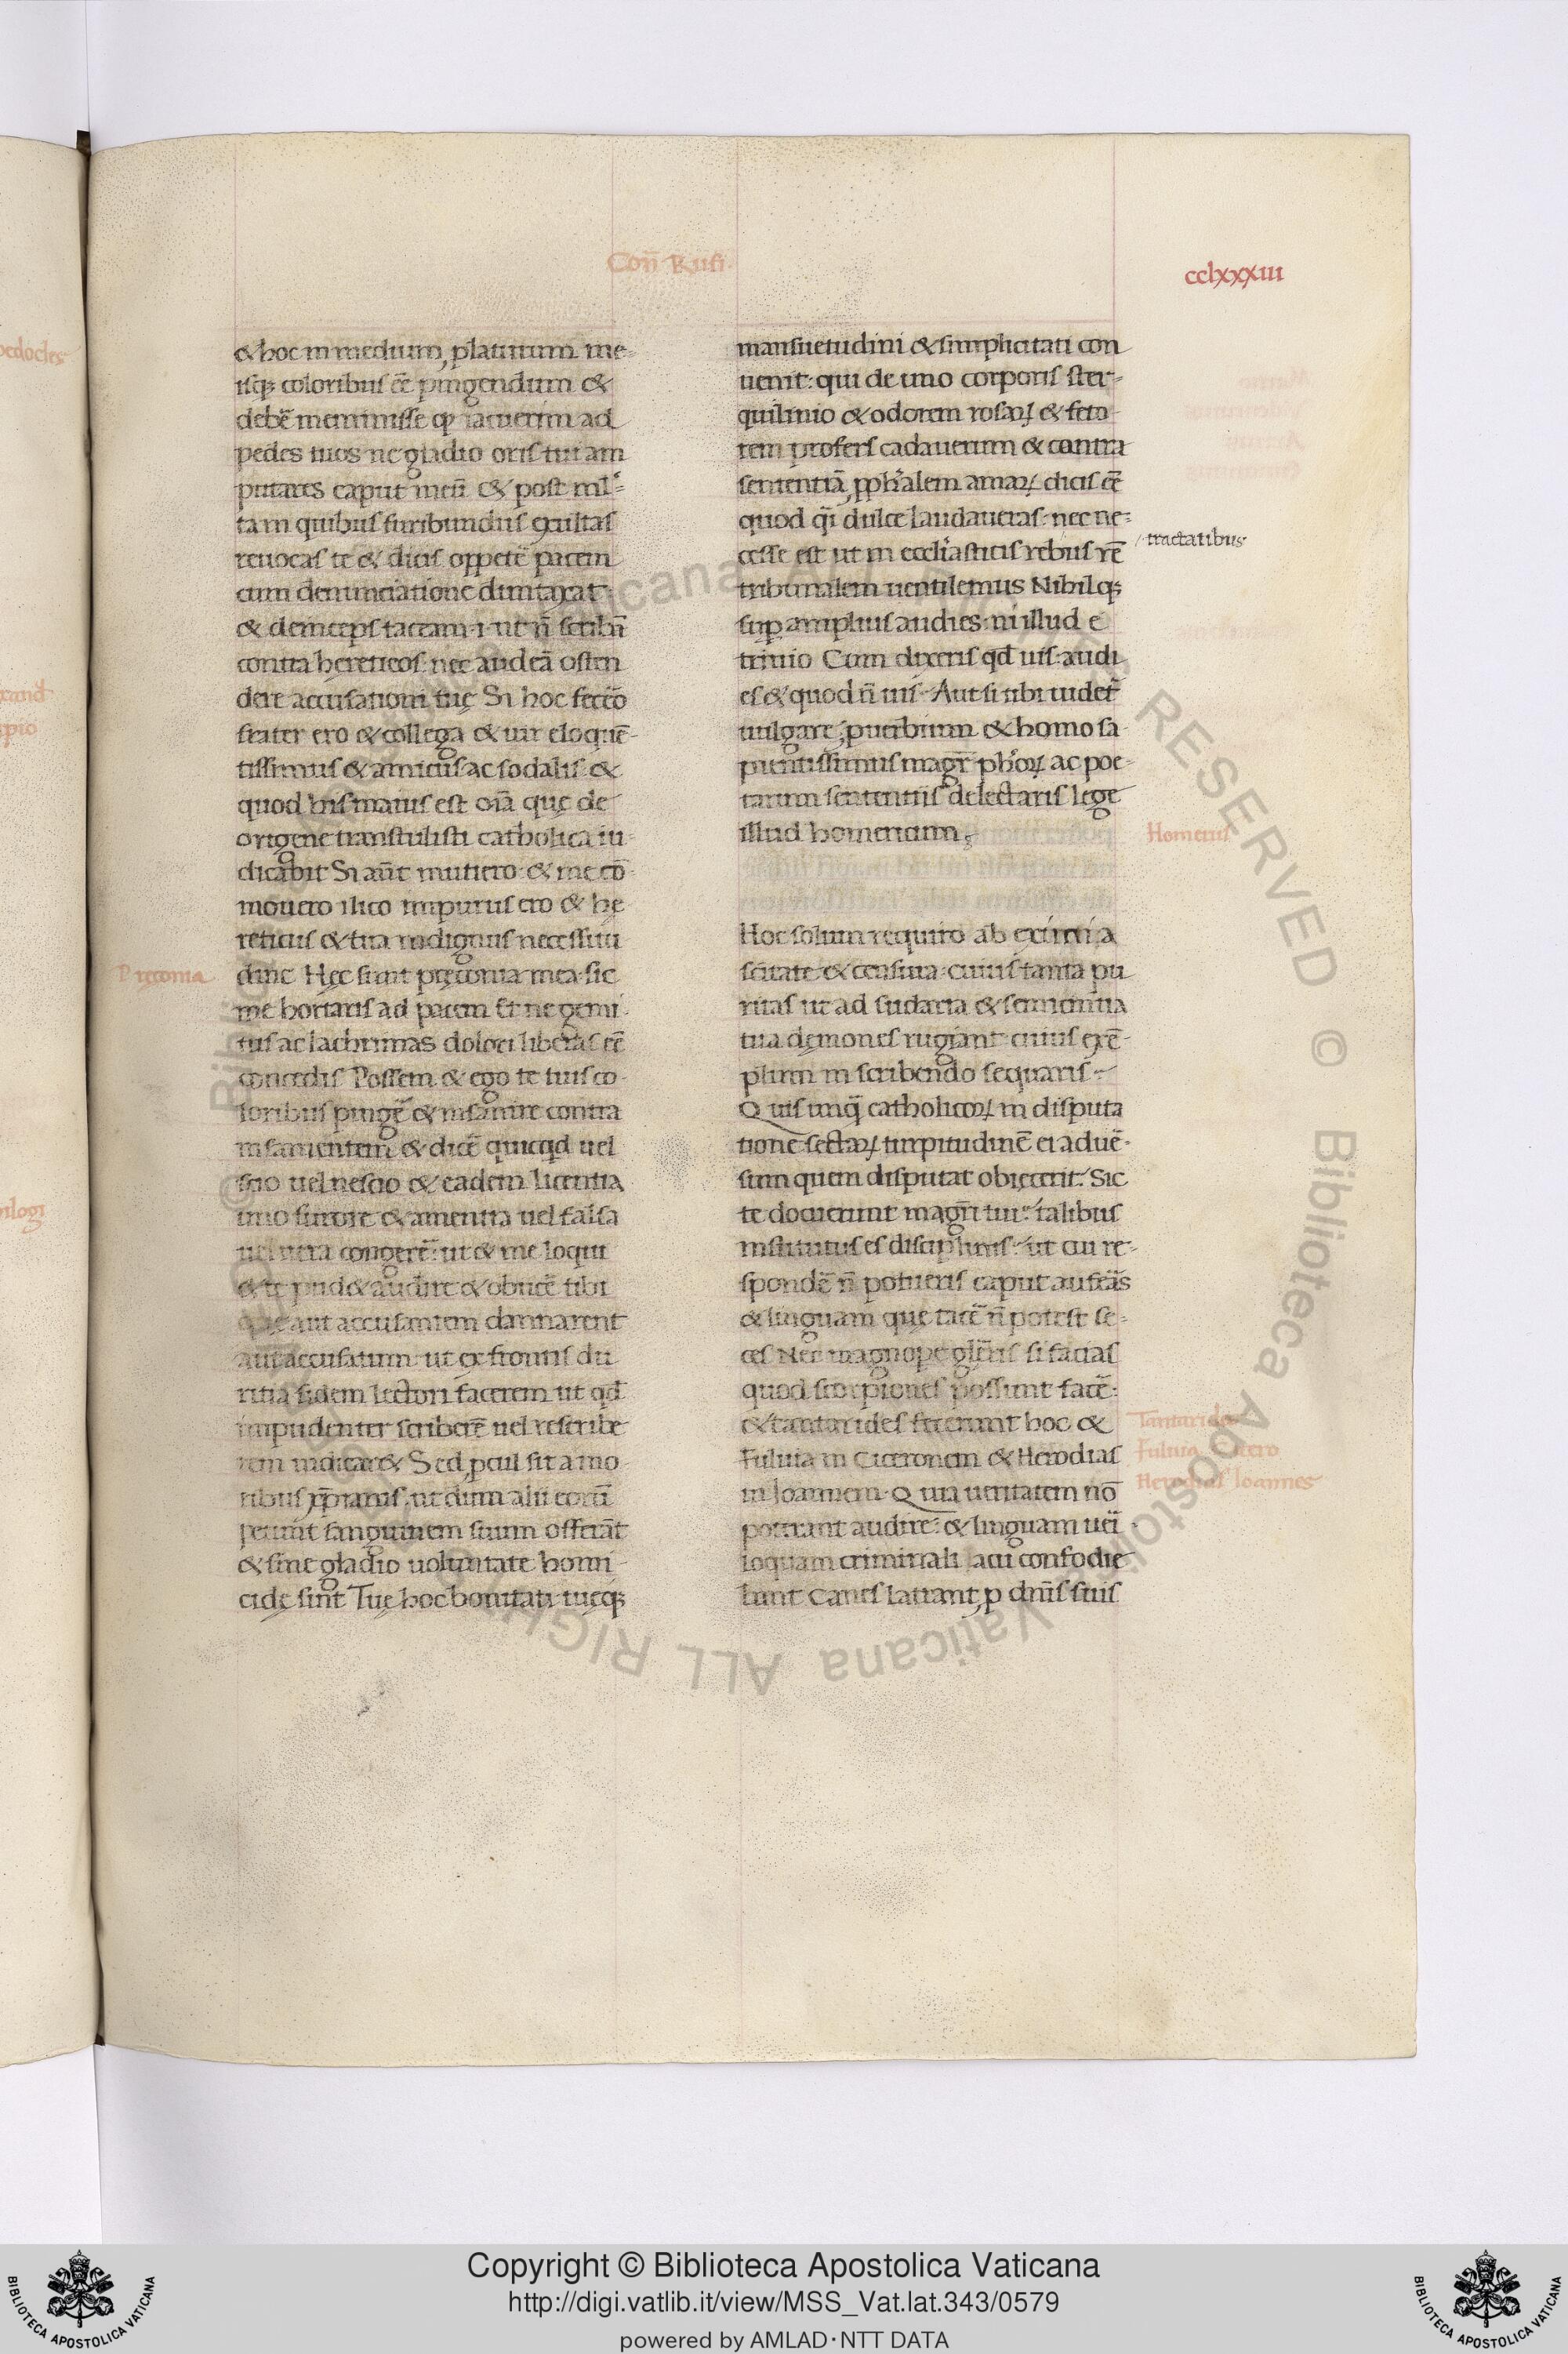 Con̄ Rufi.
cclxxxiii
& hoc in medium platinum me-
isq; coloribus eē pingendum &
debē meminisse ꝙ iacuerim ad
pedes tuos ne gladio oris tui am
putares caput meū & post ml'-
tam quibus furibundus exultas
reuocas te & dicis oppetē pacem
cum denunciatione dumtaxat
& deinceps taceam .i. ut n̄ scribā
contra hereticos nec audeā osten
dere accusationi tuę Si hoc fecero
frater ero & collega & uir eloquē-
tissimus & amicus ac sodalis &
quod his maius est oīa que de
origene transtulisti catholica iu
dicabit Si aut̄ mutiero & me cō
mouero ilico impurus ero & he
reticus & tua indignus necessitu
dine Hęc sunt pręconia mea sic
me hortaris ad pacem Et ne gemi
tus ac lachrimas dolori liberas eē
concedis Possem & ego te tuis co
loribus pingē & insanire contra
insanientem & dicē quicqd uel
scio uel nescio & eadem licentia
imo furore & amentia uel falsa
uel uera congerē ut & me loqui
& te pud& audire & obiicē tibi
quę aut accusantem damnarent
aut accusatum ut ex frontis du
ritia fidem lectori facerem ut qd
impudenter scriberē uel rescribe
rem indicar& Sed ꝓcul sit a mo
ribus xp̄ianis ut dum alii eorū
petunt sanguinem suum offerāt
& sine gladio uoluntate homi
cidę sint Tuę hoc bonitati tuęq;
Pręconia
mansuetudini & simplicitati con
uenit: qui de uno corporis ster-
quilinio & odorem rosaꝝ & feto
rem profers cadauerum & contra
sententiā ꝓph'alem amaꝝ dicis eē
quod q̄i dulce laudaueras nec ne-
cesse est ut in eccl'iasticis rebus rē
tribunalem uentilemus Nihilq;
sup̱ amplius audies ni illud e
triuio Cum dixeris qd uis audi
es & quod n̄ uis Aut si tibi uidet̄
uulgare ꝓuerbium & homo sa
pientissimus magr̄ ph'oꝝ ac poe-
tarum sententiis delectaris lege
illud homericum
Hoc solum requiro ab eximia
scitate & censura cuius tanta pu
ritas ut ad sudaria & semicintia
tua dęmones rugiant cuius exē-
plum in scribendo sequaris
Quis unq̄ catholicoꝝ in disputa
tione sectaꝝ turpitudinē ei aduē-
sum quem disputat obiecerit Sic
te docuerunt magr̄i tui talibus
institutus es disciplinis ut cui re-
spondē n̄ potueris caput auferās
& linguam quę tacē n̄ potest se-
ces Nec magnop̱e gl'eris si facias
quod scorpiones possunt facē
& cantarides fecerunt hoc &
Fuluia in Ciceronem & Herodias
in Ioannem Quia ueritatem nō
poterant audire & linguam ueri
loquam criminali acu confodie
bant Canes latrant p̱ dn̄is suis
tractatibus
Homerus
Tantarides
Fuluia Cicero
Herodias Ioannes
Copyright © Biblioteca Apostolica Vaticana
http://digi.vatlib.it/view/MSS_Vat.lat.343/0579
powered by AMLAD·NTT DATA
BIBLIOTECA APOSTOLICA VATICANA
BIBLIOTECA APOSTOLICA VATICANA